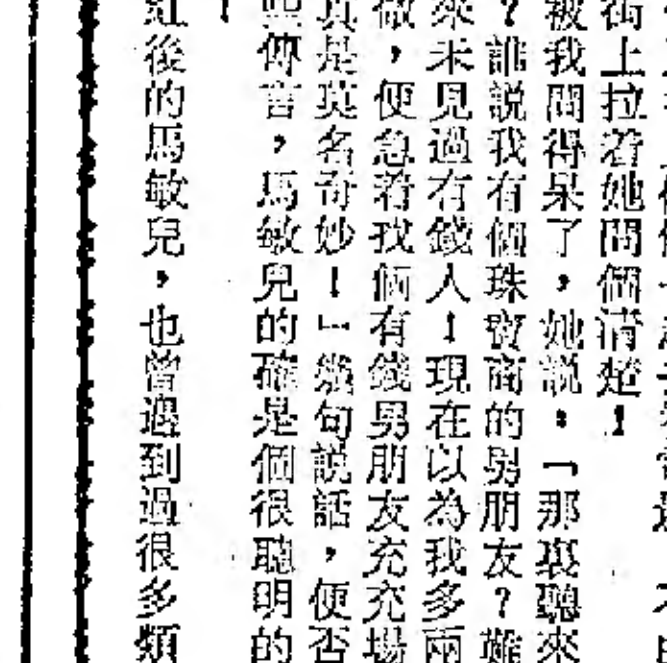 街上拉着她問個清楚！
被我問得呆了，她說：「那裏聽來
？誰說我有個珠寶商的男朋友？難
來未見過有錢人！現在以為我多兩
做，便急着找個有錢男朋友充充場
真是莫名奇妙！」幾句說話，便否
些傳言，馬敏兒的確是個很聰明的
！
紅後的馬敏兒，也曾遇到過很多類